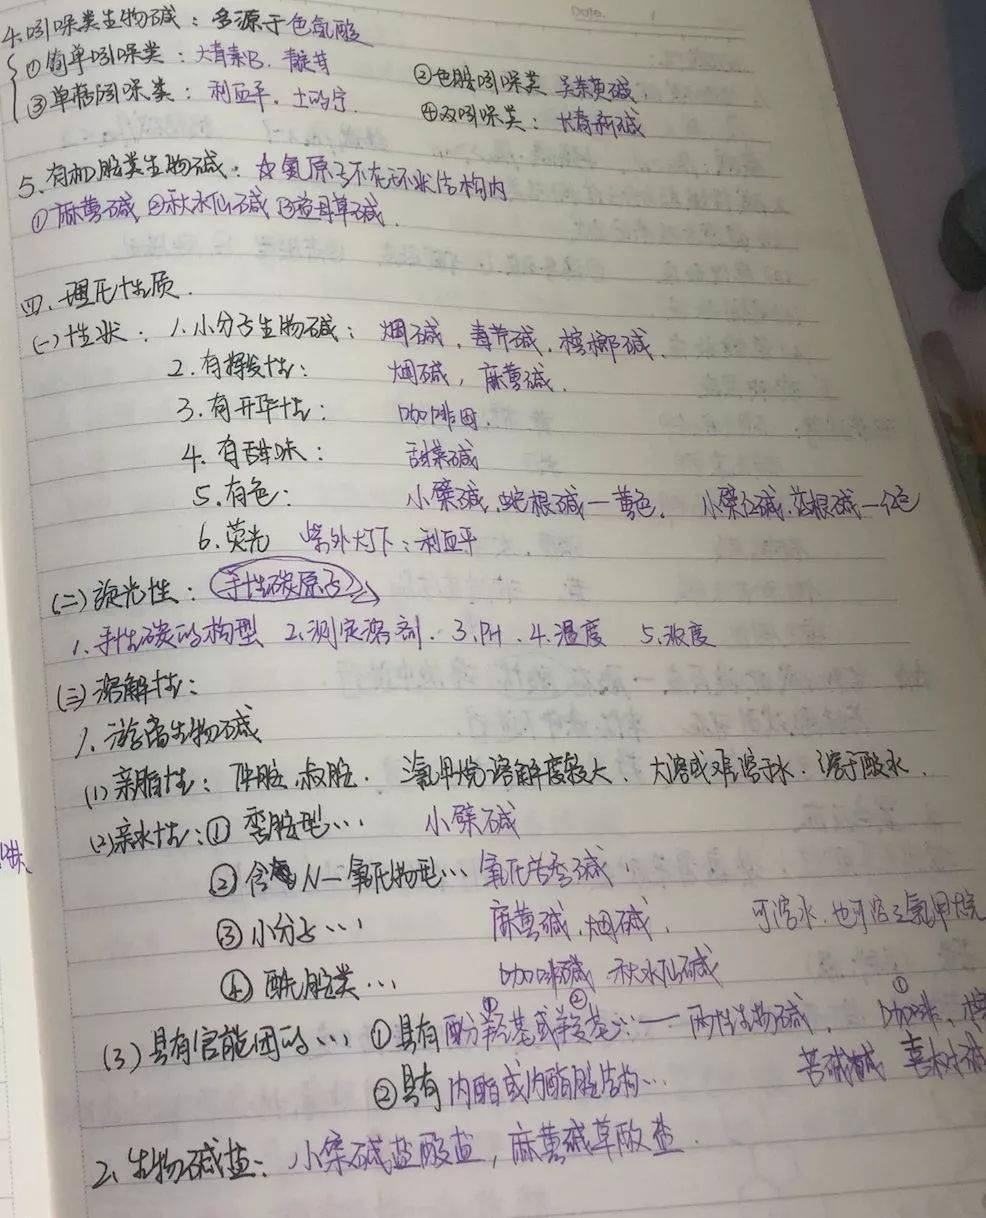 Date.
4.吲哚类生物碱：多源于色氨酸
①简单吲哚类：大青素B、靛苷 ②色胺吲哚类 吴茱萸碱
③单萜吲哚类：利血平、士的宁 ④双吲哚类：长春新碱
5、有机胺类生物碱：☆氮原子不在环状结构内
①麻黄碱 ②秋水仙碱 ③益母草碱
四、理化性质
(一)性状：1.小分子生物碱：烟碱、毒芹碱、槟榔碱
2.有挥发性：烟碱，麻黄碱、
3.有升华性：咖啡因、
4.有甜味：甜菜碱
5.有色：小檗碱、蛇根碱—黄色、小檗红碱、
6.荧光 紫外灯下：利血平
(二)旋光性：手性碳原子
1.手性碳的构型 2.测定溶剂 3.PH 4.温度 5.浓度
(三)溶解性：
1.游离生物碱
(1)亲脂性：仲胺、叔胺、三氯甲烷溶解度较大、不溶或难溶于水、溶于酸水、
(2)亲水性：①季胺型… 小檗碱
②含N—氧化物型… 氧化苦参碱
③小分子… 麻黄碱、烟碱、可溶水，也可溶三氯甲烷
④酰胺类… 咖啡碱 秋水仙碱
(3)具有官能团的… ①具有酚羟基①或羧基②：—两性生物碱、①
②具有内酯或内酰胺结构… 喜树碱
2、生物碱盐：小檗碱盐酸盐，麻黄碱草酸盐